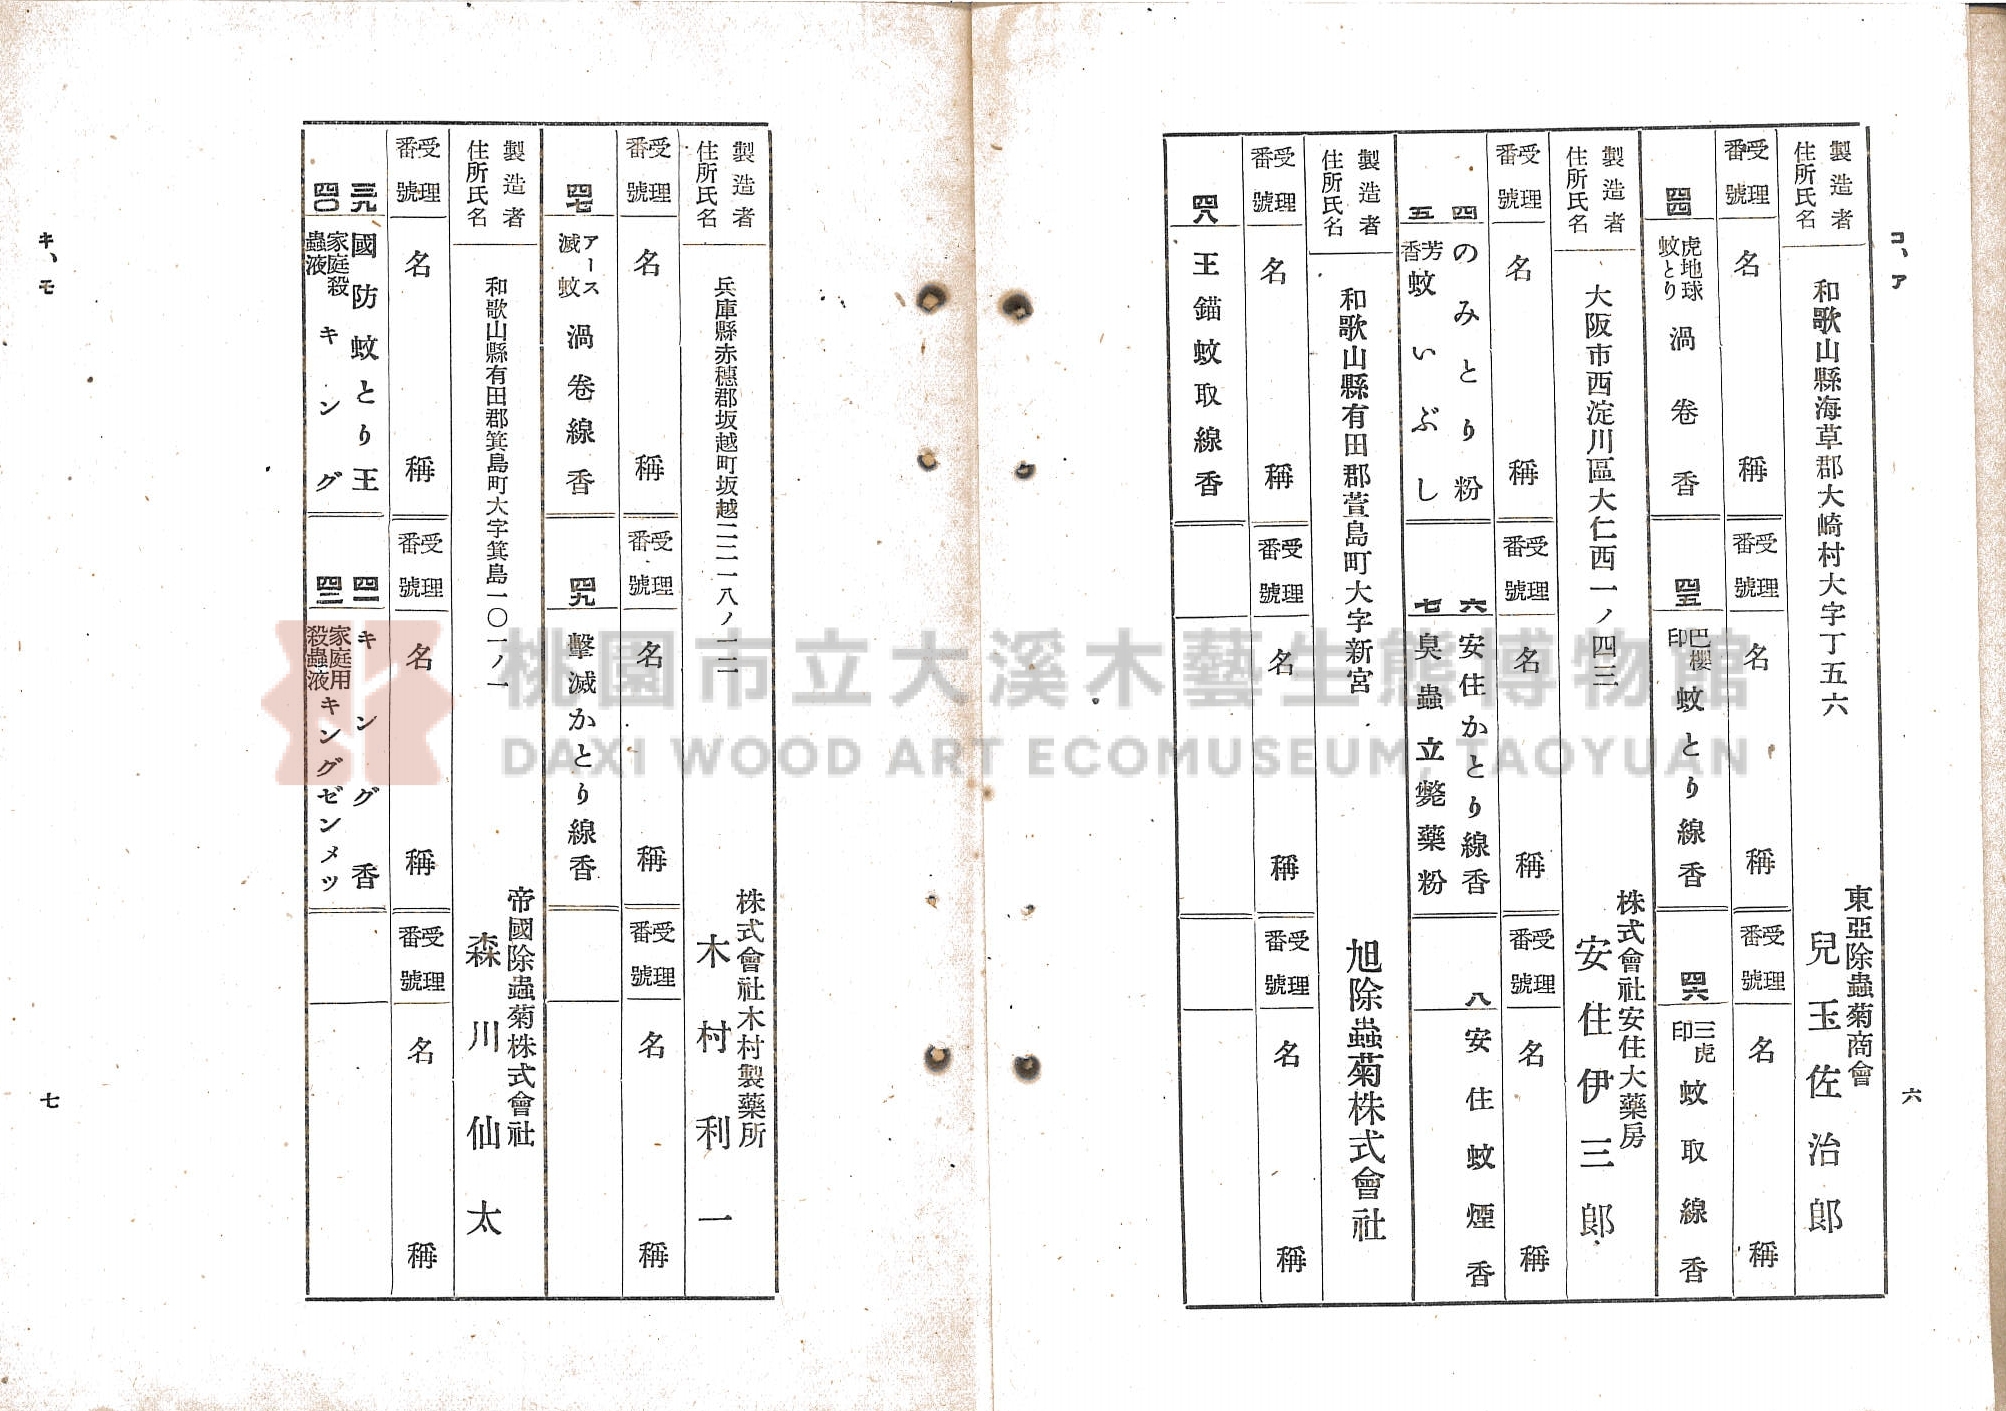 コ、ア
六
製造者
住所氏名
和歌山縣海草郡大崎村大字丁五六
東亞除蟲菊商會
兒玉佐治郎
受理
番號
名稱
受理
番號
名稱
受理
番號
名稱
四四
虎地球
蚊とり
渦卷香
四五
巴櫻
印
蚊とり線香
四六
三虎
印
蚊取線香
製造者
住所氏名
大阪市西淀川區大仁西一ノ四三
株式會社安住大藥房
安住伊三郎
受理
番號
名稱
受理
番號
名稱
受理
番號
名稱
四
のみとり粉
五
芳
香
蚊いぶし
六
安住かとり線香
七
臭蟲立斃藥粉
八
安住蚊煙香
製造者
住所氏名
和歌山縣有田郡萱島町大字新宮
旭除蟲菊株式會社
受理
番號
名稱
受理
番號
名稱
受理
番號
名稱
四八
王錨蚊取線香
製造者
住所氏名
兵庫縣赤穗郡坂越町坂越二二一八ノ一二
株式會社木村製藥所
木村利一
受理
番號
名稱
受理
番號
名稱
受理
番號
名稱
四七
アース
滅蚊
渦卷線香
四九
擊滅かとり線香
製造者
住所氏名
和歌山縣有田郡箕島町大字箕島一〇一ノ一
帝國除蟲菊株式會社
森川仙太
受理
番號
名稱
受理
番號
名稱
受理
番號
名稱
三九
國防蚊とり王
四〇
家庭殺
蟲液
キング
四一
キング香
四二
家庭用
殺蟲液
キングゼンメツ
キ、モ
七
桃園市立大溪木藝生態博物館
DAXI WOOD ART ECOMUSEUM, TAOYUAN